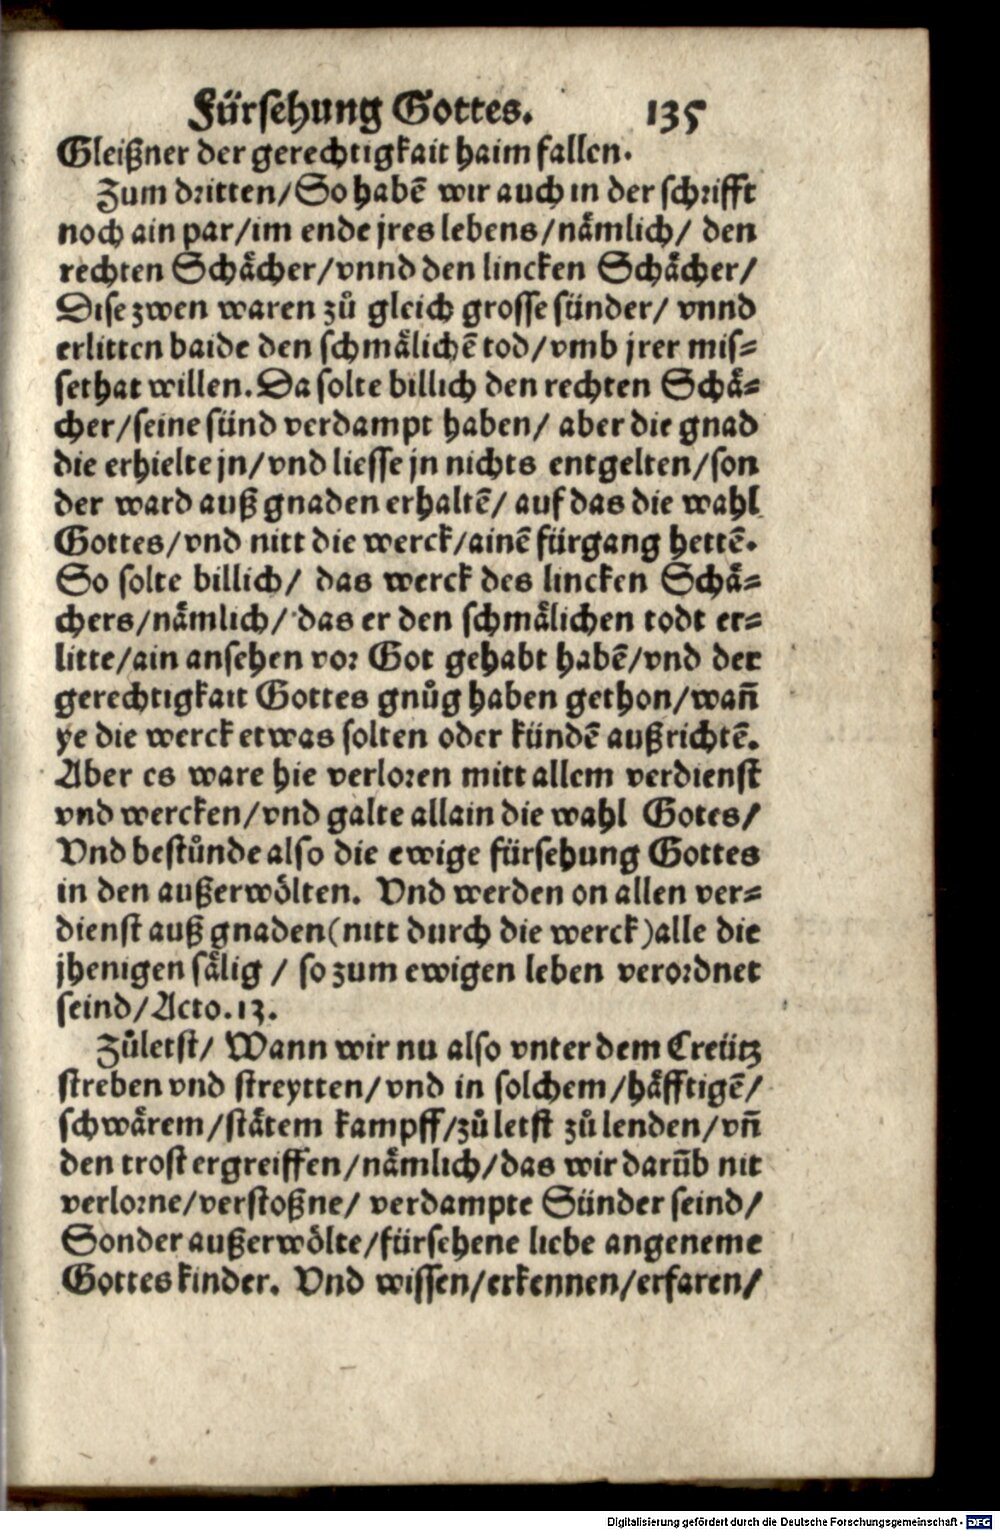 Fürsehung Gottes. 135
Gleißner der gerechtigkait haim fallen.
Zum dritten/So habē wir auch in der schrifft
noch ain par/im ende jres lebens/nämlich/ den
rechten Schächer/vnnd den lincken Schächer/
Dise zwen waren zů gleich grosse sünder/ vnnd
erlitten baide den schmälichē tod/vmb jrer mis⸗
sethat willen. Da solte billich den rechten Schä⸗
cher/seine sünd verdampt haben/ aber die gnad
die erhielte jn/vnd liesse jn nichts entgelten/son
der ward auß gnaden erhaltē/ auf das die wahl
Gottes/vnd nitt die werck/ainē fürgang hettē.
So solte billich/ das werck des lincken Schä⸗
chers/nämlich/ das er den schmälichen todt er⸗
litte/ain ansehen vor Got gehabt habē/vnd der
gerechtigkait Gottes gnůg haben gethon/wañ
ye die werck etwas solten oder kündē außrichtē.
Aber es ware hie verloren mitt allem verdienst
vnd wercken/vnd galte allain die wahl Gotes/
Vnd bestůnde also die ewige fürsehung Gottes
in den außerwölten. Vnd werden on allen ver⸗
dienst auß gnaden(nitt durch die werck)alle die
jhenigen sälig / so zum ewigen leben verordnet
seind/Acto.13.
Zůletst/ Wann wir nu also vnter dem Creütz
streben vnd streytten/vnd in solchem/häfftigē/
schwärem/stätem kampff/zů letst zů lenden/vñ
den trost ergreiffen/nämlich/das wir darūb nit
verlorne/verstoßne/ verdampte Sünder seind/
Sonder außerwölte/fürsehene liebe angeneme
Gottes kinder. Vnd wissen/erkennen/erfaren/
Digitalisierung gefördert durch die Deutsche Forschungsgemeinschaft - DFG